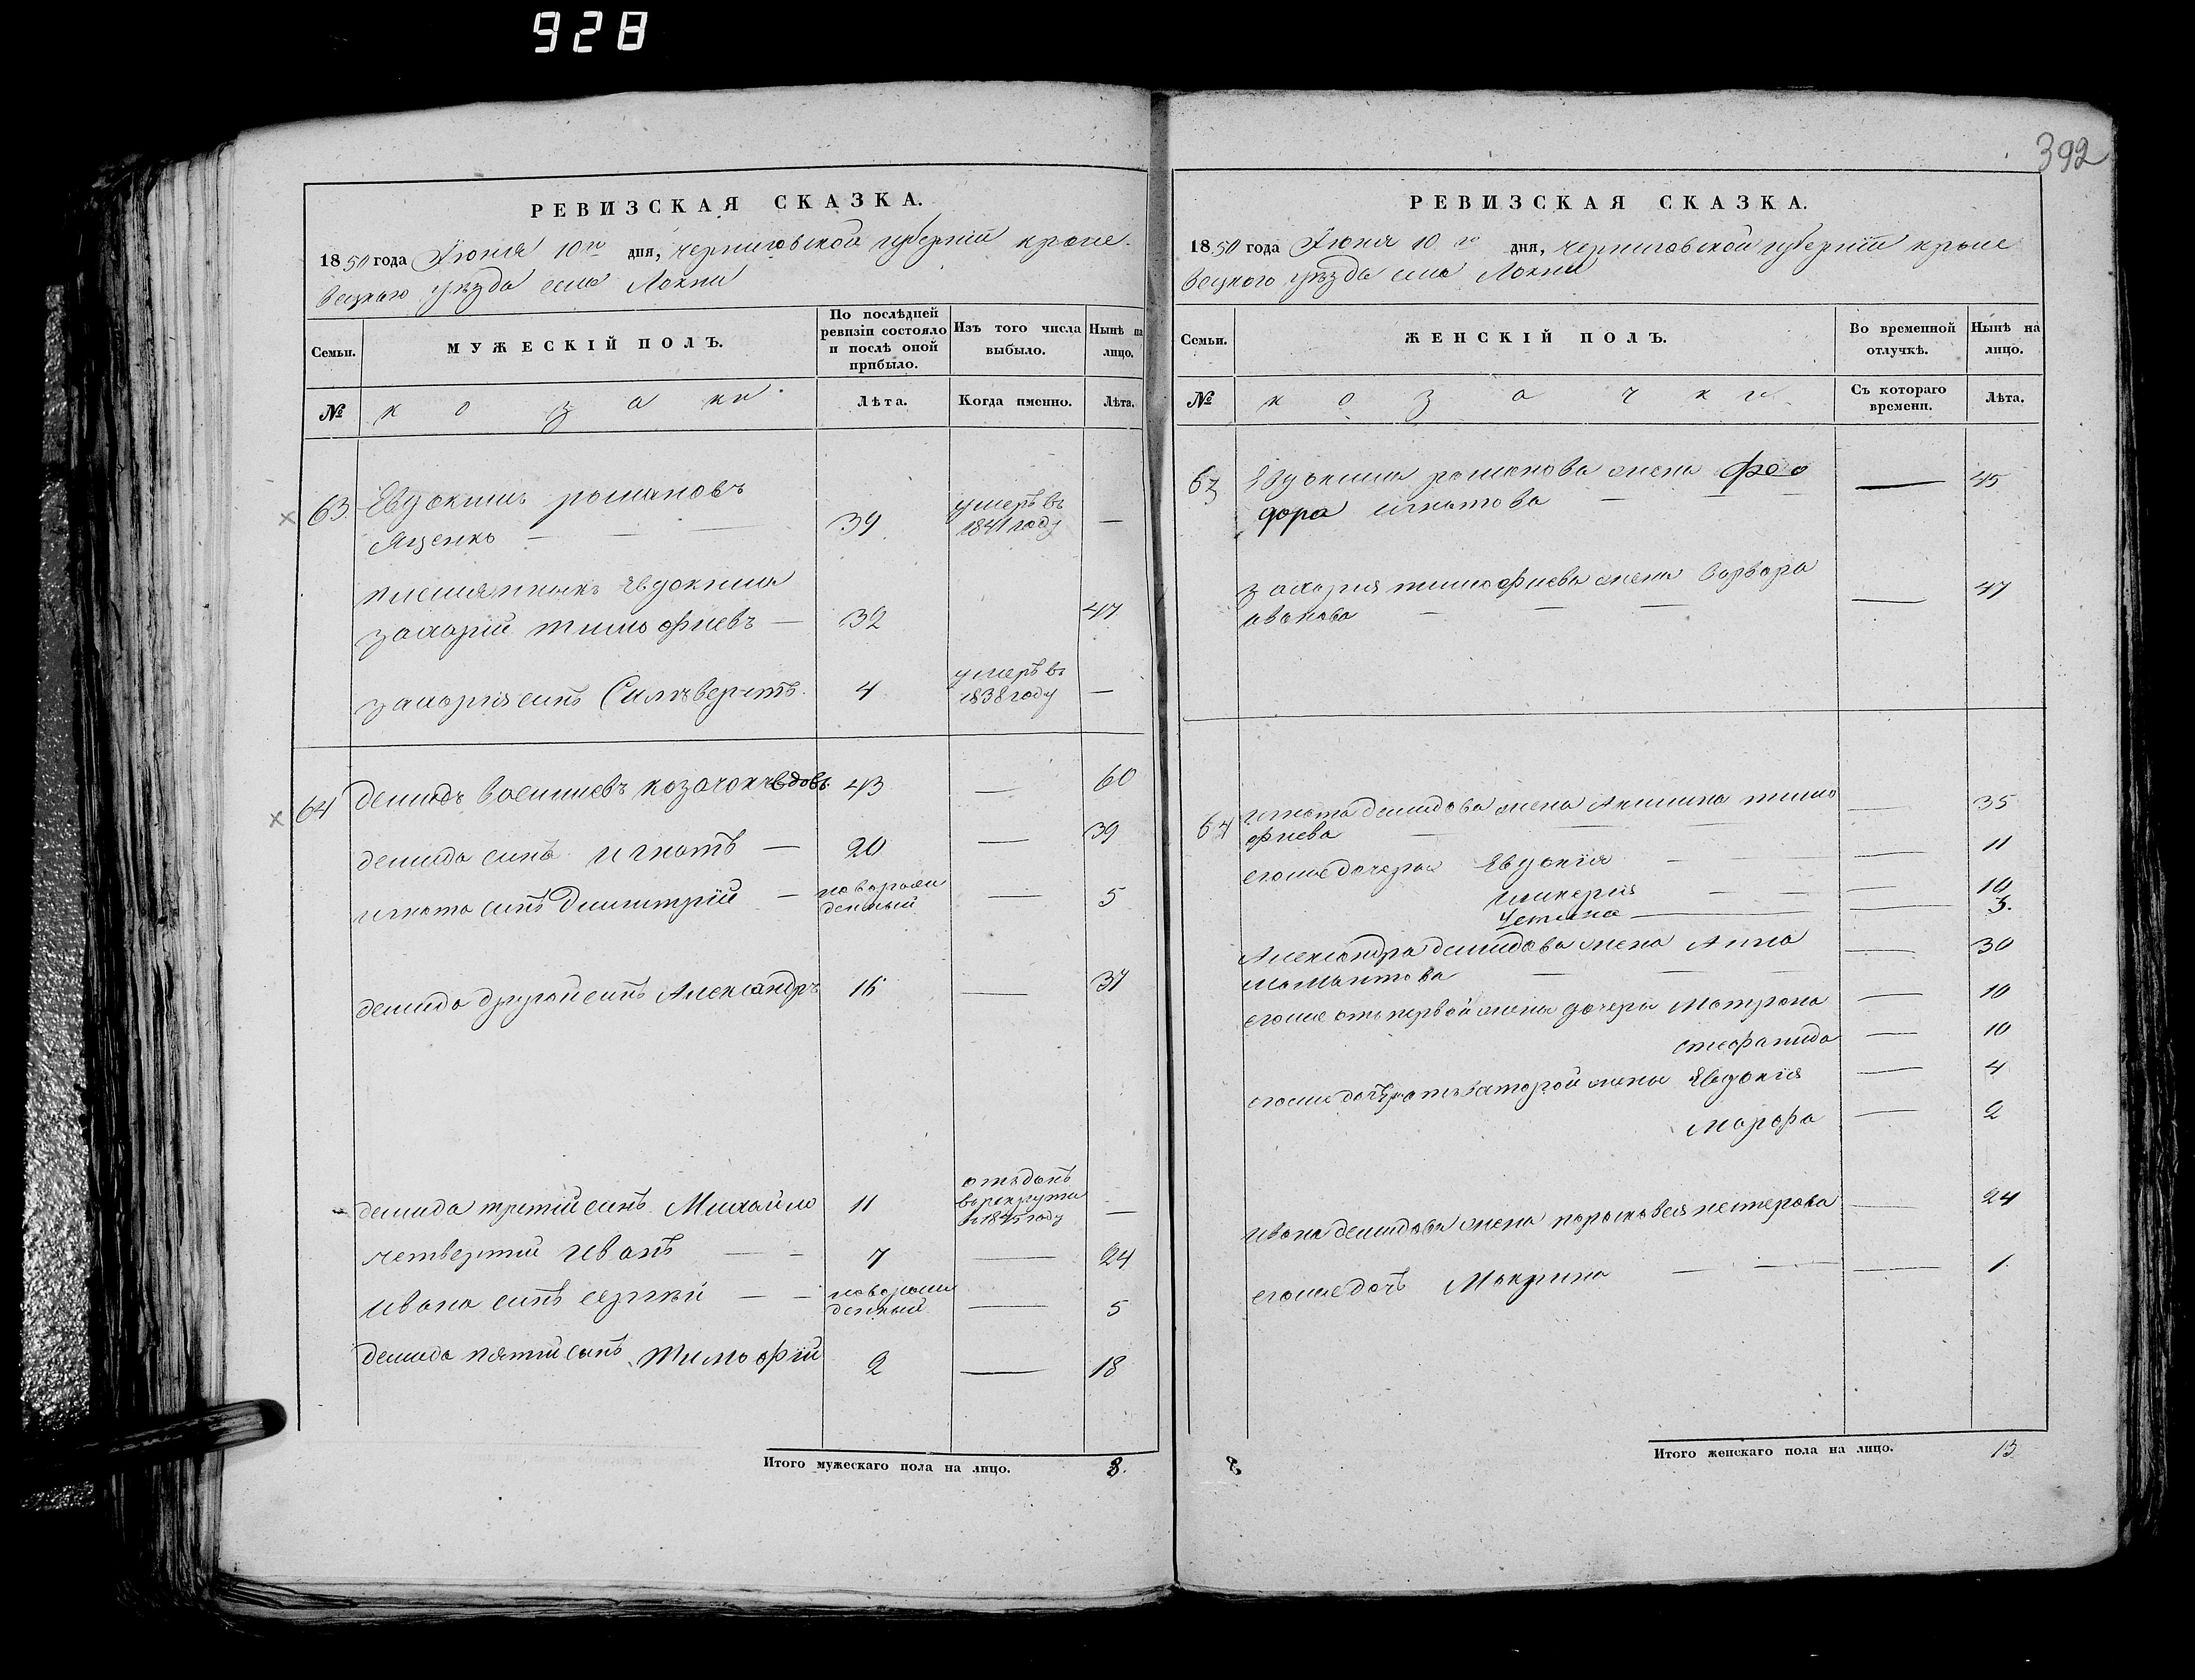 928
392
РЕВИЗСКАЯ СКАЗКА.
1850 года Іюня 10го дня, черниговской губерніи кроле-
вецкаго уѣзда села Локни
Семьи.
МУЖЕСКІЙ ПОЛЪ.
По послѣдней ревизіи состояло и послѣ оной прибыло.
Изъ того числа выбыло.
Нынѣ на лицо.
№
козаки
Лѣта.
Когда именно.
Лѣта.
63. Евдокимъ романовъ
Яценко — — 39 умеръ въ 1841 году —
племянникъ Евдокима
захарій тимофиевъ — 32 47
захарія синъ Силъверстъ. 4 умеръ въ 1838 году —
64 демидъ 43 — 60
демида синъ игнатъ — 20 — 39
игната синъ Димитрій — новорожденный — 5
демида другой синъ Александръ 16 — 37
демида третій синъ Михайло 11 отъданъ въ рекруты в 1845 году —
четвертій иванъ — — 7 — 24
ивана синъ сергѣй — — новорожденный — 5
демида пятій синъ Тимофій 2 — 18
Итого мужескаго пола на лицо. 8.
РЕВИЗСКАЯ СКАЗКА.
1850 года Іюня 10го дня, черниговской губерніи кроле
вецкого уѣзда села Локни
Семьи.
ЖЕНСКІЙ ПОЛЪ.
Во временной отлучкѣ.
Нынѣ на лицо.
№
козачки
Съ котораго времени.
Лѣта.
63 Евдокима романова жена Фео
дора игнатова — — — 45
захария тимофиева жена варвара
иванова — — — — 47
64 игната демидова жена Акилина тимо
фиева — — — 35
егоже дочери Евдокія — — — 11
гликерія — — — 10
Устина — — 5.
Александра демидова жена Анна
мамантова — — — — 30
егоже отъ первой жены дочери Матрона — 10
стефанида — 10
егоже дочери отъ второй жены Евдокія — 4
Марфа — 2
ивана демидова жена парасковея нестерова — 24
егоже дочъ Макрина — — — 1.
8
Итого женскаго пола на лицо. 13